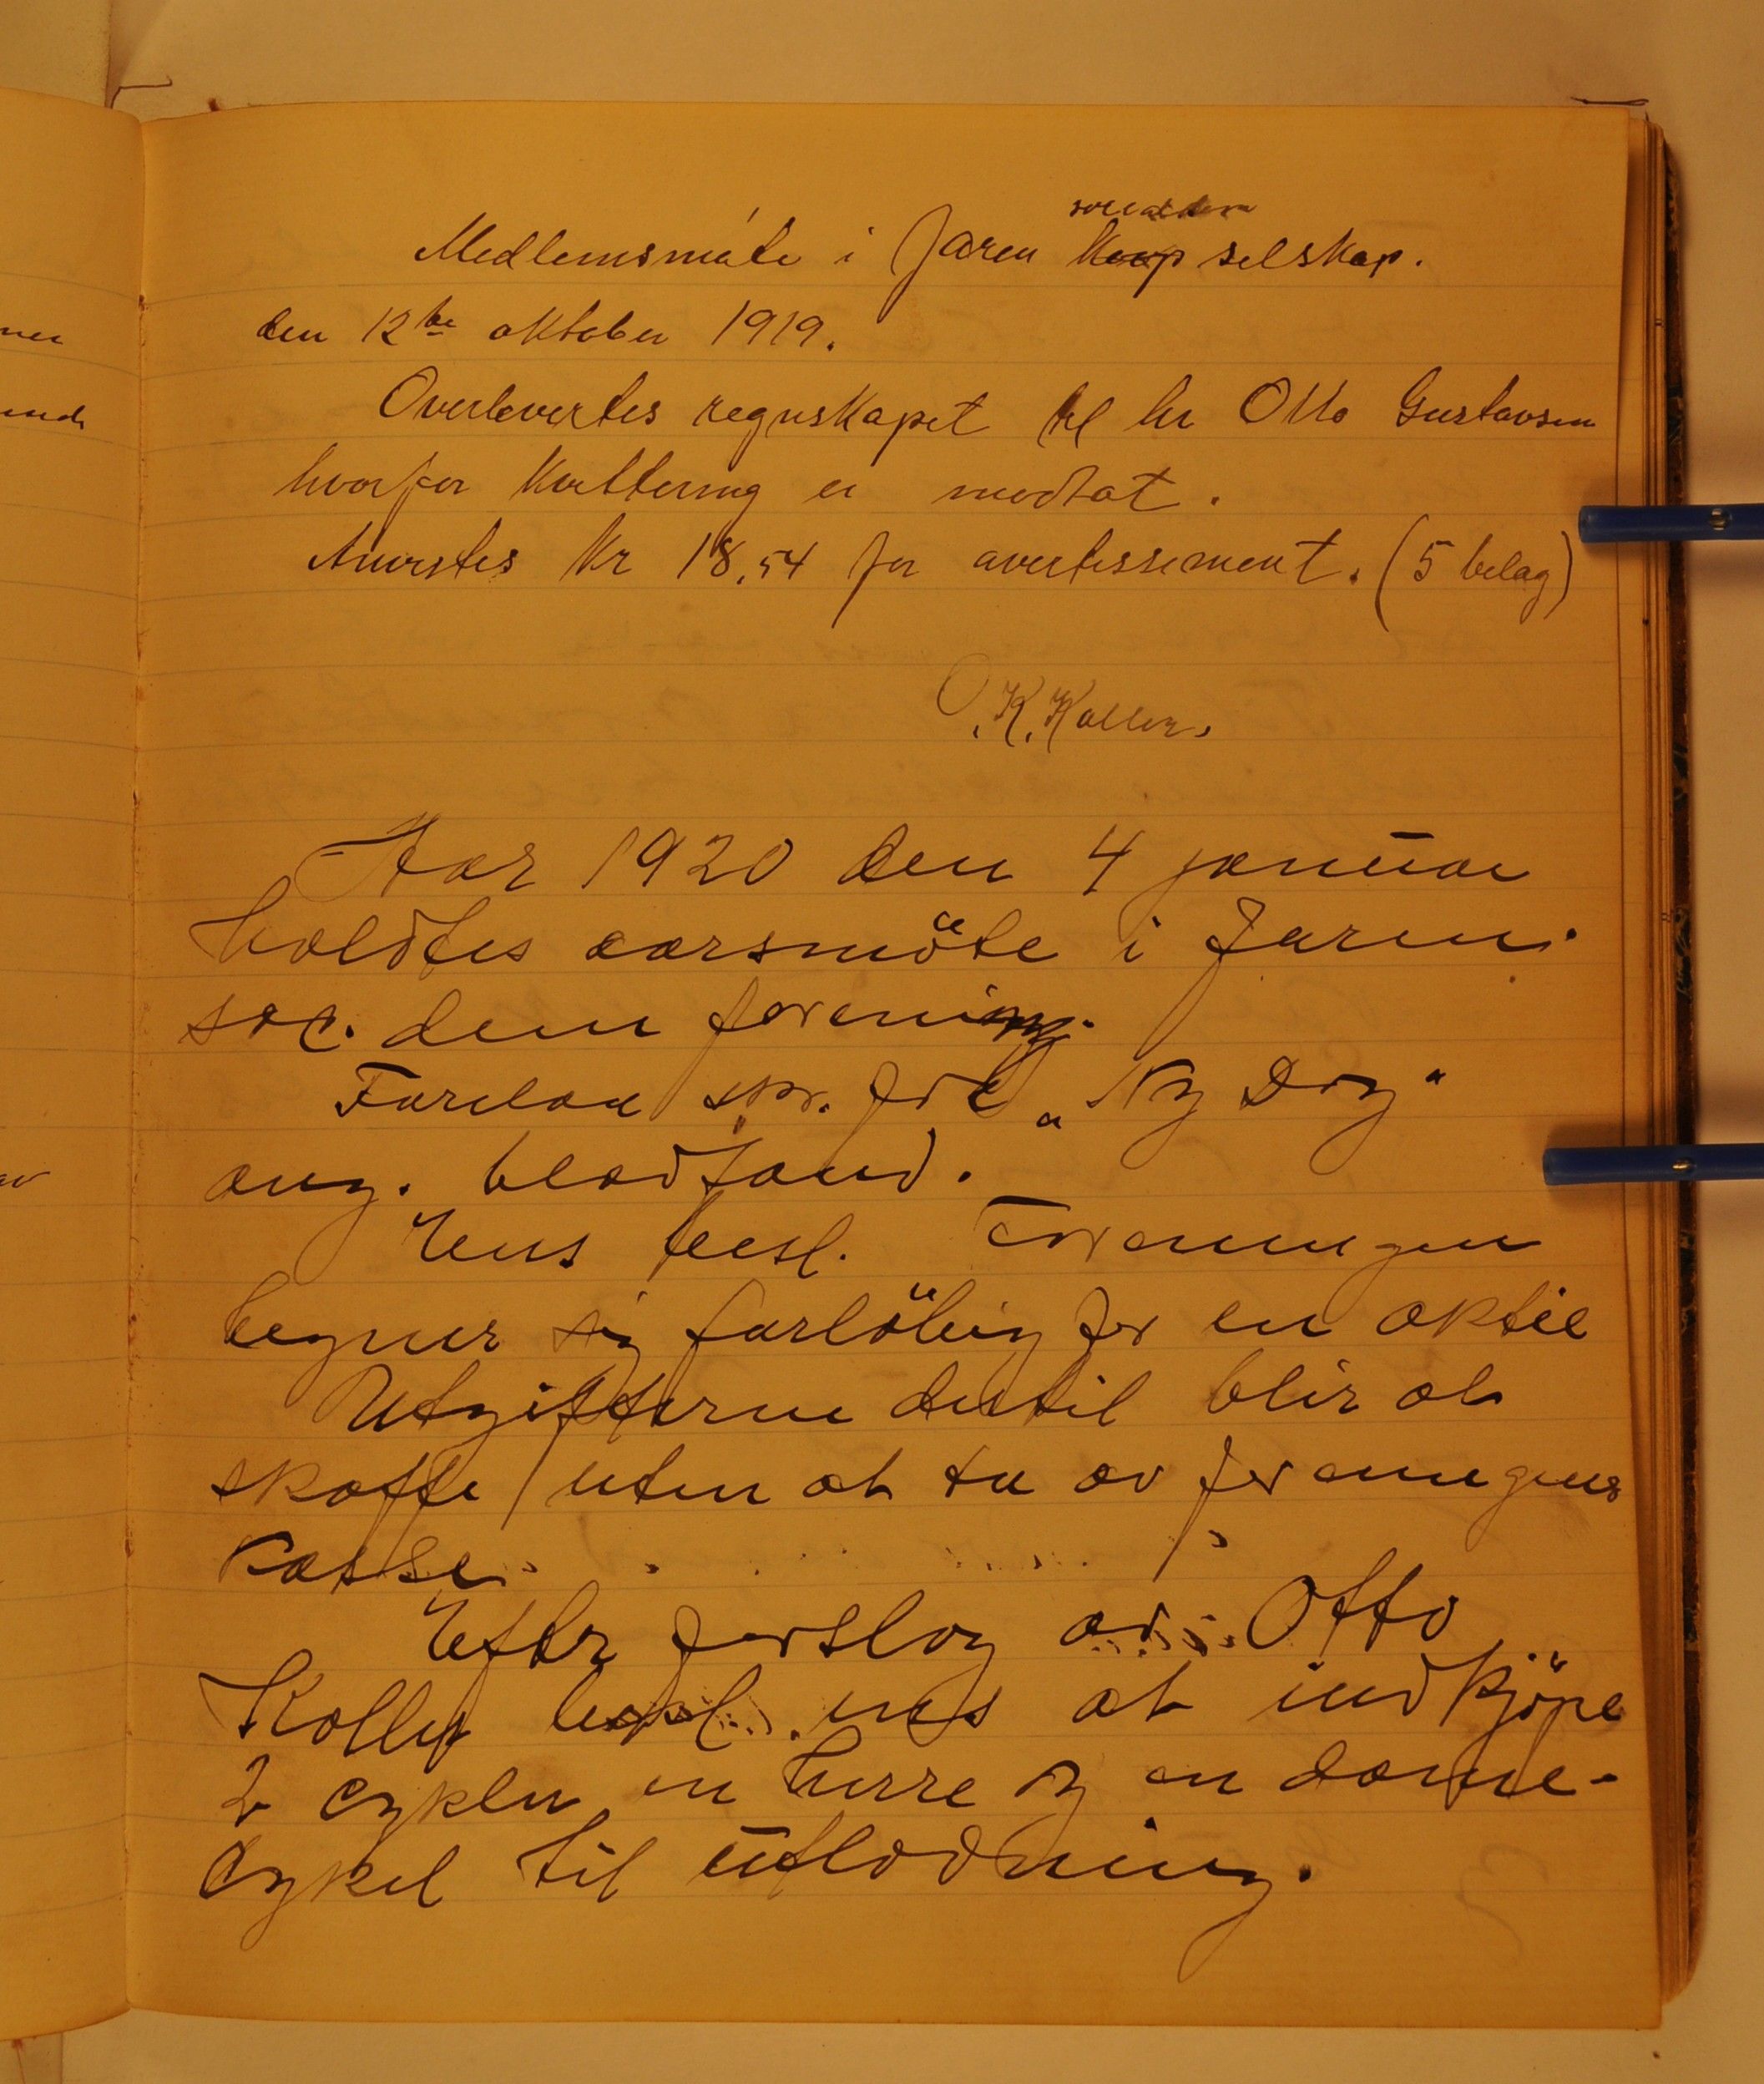 socialdem
Medlemsmöte i Jaren Korp selskap.
den 12te oktober 1919.
Overlevertes regnskapet til hr Otto Gustavsen
hvorfor kvittering er modtat.
Anvistes Kr 18,54 for avertissement. (5 belag)
O. K. Koller.
Aar 1920 den 4 januar
holdtes aarsmöte i Jaren
soc. dem forening.
Forelaa skr. fra "Ny Dag"
ang. bladfond.
Ens besl. Foreningen
tegner sig forlöbig for en aktie
Utgifterne dertil blir at
skaffe uten at ta av foreningens
kasse.
Efter forslag av Otto
Koller besl. ens at indkjöpe
2 cykler en herre og en dame-
cykel til utlodning.